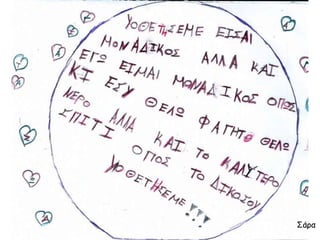 ΥΟΘΕΤΗΣΕΜΕ ΕΙΣΑΙ
ΜΟΝΑΔΙΚΟΣ ΑΛΛΑ ΚΑΙ
ΕΓΩ ΕΙΜΑΙ ΜΟΝΑΔΙΚΟΣ ΟΠΟΣ
ΚΙ ΕΣΥ ΘΕΛΩ ΦΑΓΗΤΟ ΘΕΛΩ
ΝΕΡΟ ΑΛΛΑ ΚΑΙ ΤΟ ΚΑΛΥΤΕΡΟ
ΣΠΙΤΙ ΟΠΟΣ ΤΟ ΔΙΚΟΣΟΥ
ΥΟΘΕΤΗΣΕΜΕ!!!
Σάρα